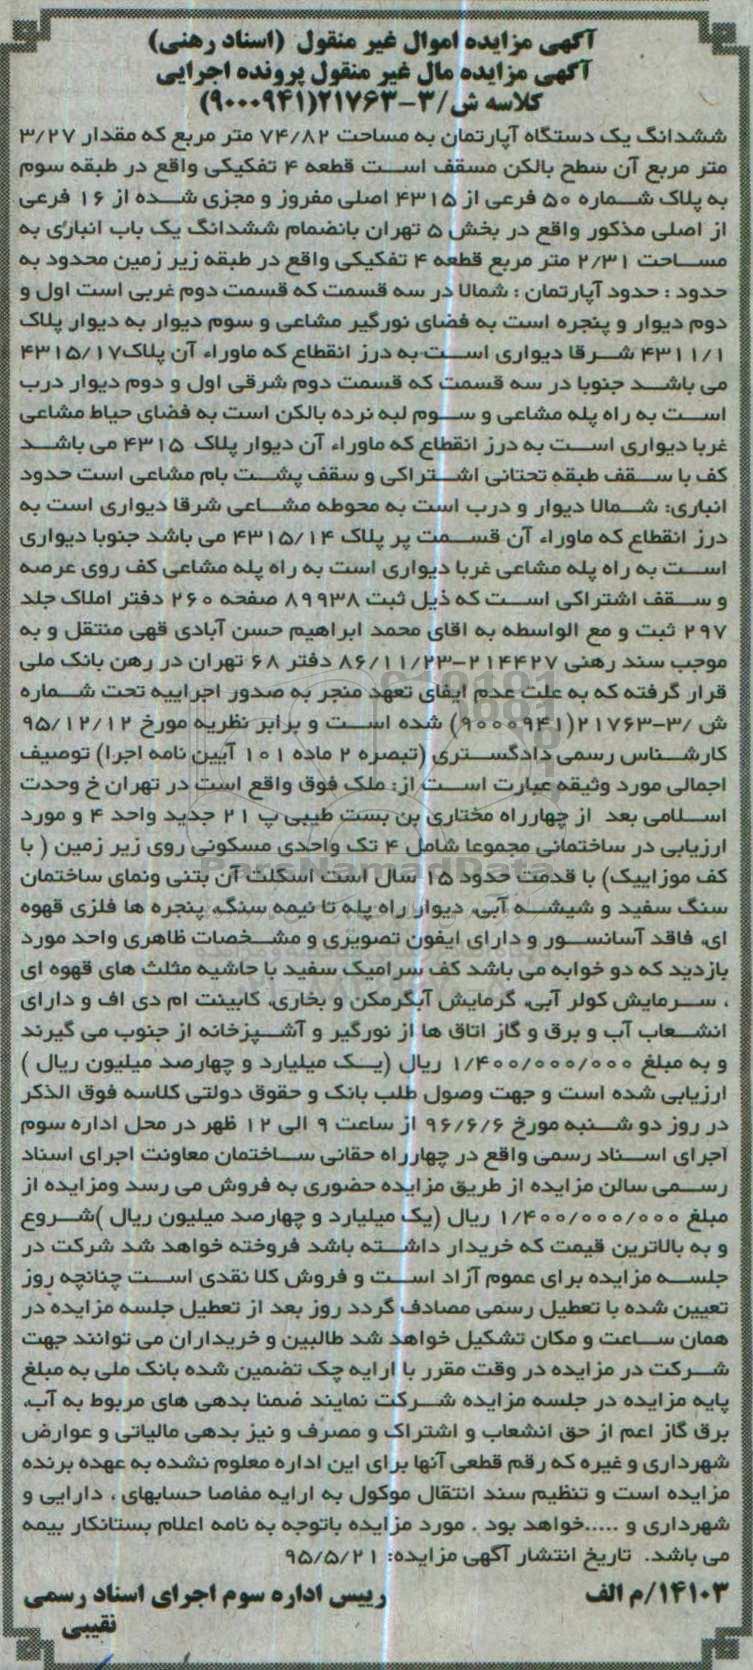 آگهی مزایده اموال غیر منقول (اسناد رهنی)
آگهی مزایده مال غیر منقول پرونده اجرایی
کلاسه ش/۳-۲۱۷۶۳(۹۰۰۰۹۴۱)
ششدانگ یک دستگاه آپارتمان به مساحت ۷۴/۸۲ متر مربع که مقدار ۳/۲۷
متر مربع آن سطح بالکن مسقف است قطعه ۴ تفکیکی واقع در طبقه سوم
به پلاک شماره ۵۰ فرعی از ۴۳۱۵ اصلی مفروز و مجزی شده از ۱۶ فرعی
از اصلی مذکور واقع در بخش ۵ تهران بانضمام ششدانگ یک باب انباری به
مساحت ۲/۳۱ متر مربع قطعه ۴ تفکیکی واقع در طبقه زیر زمین محدود به
حدود : حدود آپارتمان : شمالا در سه قسمت که قسمت دوم غربی است اول و
دوم دیوار و پنجره است به فضای نورگیر مشاعی و سوم دیوار به دیوار پلاک
۴۳۱۱/۱ شرقا دیواری است به درز انقطاع که ماوراء آن پلاک۴۳۱۵/۱۷
می باشد جنوبا در سه قسمت که قسمت دوم شرقی اول و دوم دیوار درب
است به راه پله مشاعی و سوم لبه نرده بالکن است به فضای حیاط مشاعی
غربا دیواری است به درز انقطاع که ماوراء آن دیوار پلاک ۴۳۱۵ می باشد
کف با سقف طبقه تحتانی اشتراکی و سقف پشت بام مشاعی است حدود
انباری: شمالا دیوار و درب است به محوطه مشاعی شرقا دیواری است به
درز انقطاع که ماوراء آن قسمت پر پلاک ۴۳۱۵/۱۴ می باشد جنوبا دیواری
است به راه پله مشاعی غربا دیواری است به راه پله مشاعی کف روی عرصه
و سقف اشتراکی است که ذیل ثبت ۸۹۹۳۸ صفحه ۲۶۰ دفتر املاک جلد
۲۹۷ ثبت و مع الواسطه به اقای محمد ابراهیم حسن آبادی قهی منتقل و به
موجب سند رهنی ۲۱۴۴۲۷-۸۶/۱۱/۲۳ دفتر ۶۸ تهران در رهن بانک ملی
قرار گرفته که به علت عدم ایفای تعهد منجر به صدور اجراییه تحت شماره
ش /۳-۲۱۷۶۳(۹۰۰۰۹۴۱) شده است و برابر نظریه مورخ ۹۵/۱۲/۱۲
کارشناس رسمی دادگستری (تبصره ۲ ماده ۱۰۱ آیین نامه اجرا) توصیف
اجمالی مورد وثیقه عبارت است از: ملک فوق واقع است در تهران خ وحدت
اسلامی بعد از چهارراه مختاری بن بست طیبی پ ۲۱ جدید واحد ۴ و مورد
ارزیابی در ساختمانی مجموعا شامل ۴ تک واحدی مسکونی روی زیر زمین ( با
کف موزاییک) با قدمت حدود ۱۵ سال است اسکلت آن بتنی ونمای ساختمان
سنگ سفید و شیشه آبی، دیوار راه پله تا نیمه سنگ، پنجره ها فلزی قهوه
ای، فاقد آسانسور و دارای ایفون تصویری و مشخصات ظاهری واحد مورد
بازدید که دو خوابه می باشد کف سرامیک سفید با حاشیه مثلث های قهوه ای
، سرمایش کولر آبی، گرمایش آبگرمکن و بخاری، کابینت ام دی اف و دارای
انشعاب آب و برق و گاز اتاق ها از نورگیر و آشپزخانه از جنوب می گیرند
و به مبلغ ۱/۴۰۰/۰۰۰/۰۰۰ ریال (یک میلیارد و چهارصد میلیون ریال )
ارزیابی شده است و جهت وصول طلب بانک و حقوق دولتی کلاسه فوق الذکر
در روز دو شنبه مورخ ۹۶/۶/۶ از ساعت ۹ الی ۱۲ ظهر در محل اداره سوم
آجرای اسناد رسمی واقع در چهارراه حقانی ساختمان معاونت اجرای اسناد
رسمی سالن مزایده از طریق مزایده حضوری به فروش می رسد ومزایده از
مبلغ ۱/۴۰۰/۰۰۰/۰۰۰ ریال (یک میلیارد و چهارصد میلیون ریال )شروع
و به بالاترین قیمت که خریدار داشته باشد فروخته خواهد شد شرکت در
جلسه مزایده برای عموم آزاد است و فروش کلا نقدی است چنانچه روز
تعیین شده با تعطیل رسمی مصادف گردد روز بعد از تعطیل جلسه مزایده در
همان ساعت و مکان تشکیل خواهد شد طالبین و خریداران می توانند جهت
شرکت در مزایده در وقت مقرر با ارایه چک تضمین شده بانک ملی به مبلغ
پایه مزایده در جلسه مزایده شرکت نمایند ضمنا بدهی های مربوط به آب،
برق گاز اعم از حق انشعاب و اشتراک و مصرف و نیز بدهی مالیاتی و عوارض
شهرداری و غیره که رقم قطعی آنها برای این اداره معلوم نشده به عهده برنده
مزایده است و تنظیم سند انتقال موکول به ارایه مفاصا حسابهای ، دارایی و
شهرداری و .....خواهد بود . مورد مزایده باتوجه به نامه اعلام بستانکار بیمه
می باشد. تاریخ انتشار آگهی مزایده: ۹۵/۵/۲۱
۱۴۱۰۳/م الف
رییس اداره سوم اجرای اسناد رسمی
نقیبی
ParsNamadData